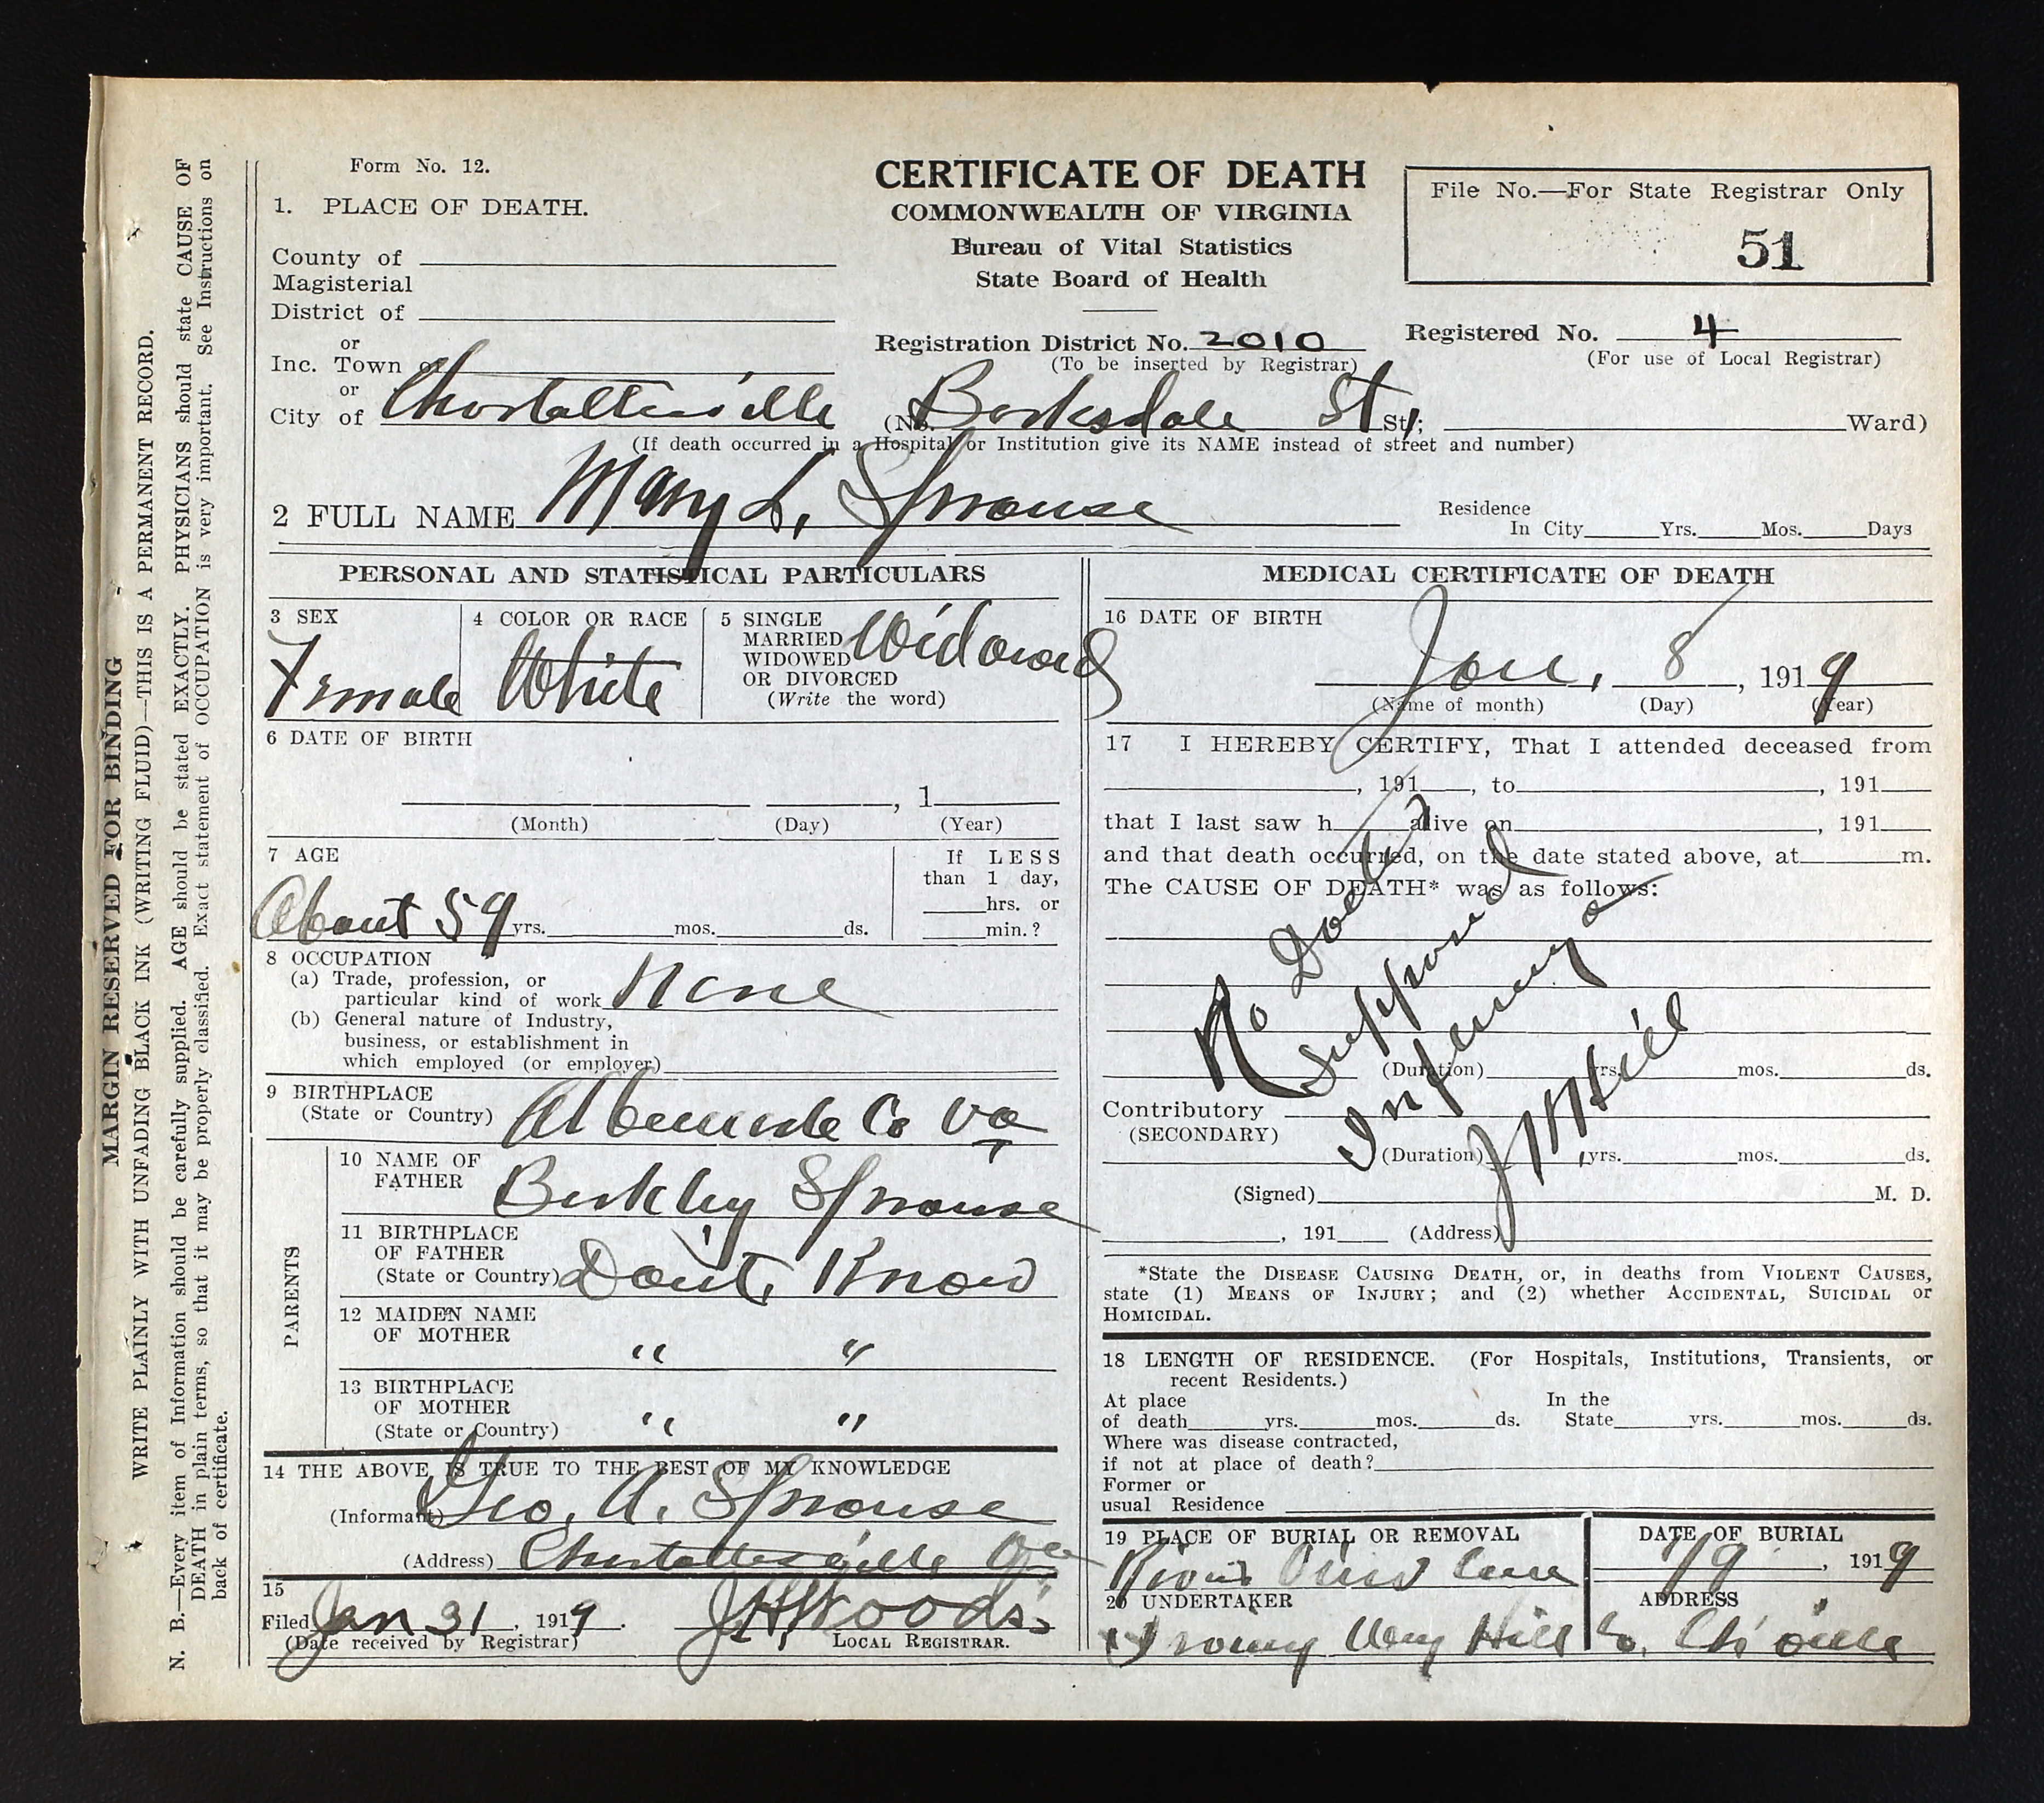 Form No. 12.
1. PLACE OF DEATH.
County of
Magisterial
District of
or
Inc. Town of
or
City of Charlottesville
CERTIFICATE OF DEATH
COMMONWEALTH OF VIRGINIA
Bureau of Vital Statistics
State Board of Health
Registration District No. 2010
(To be inserted by Registrar)
File No.—For State Registrar Only
51
Registered No. 4
(For use of Local Registrar)
(No. Barksdale St St.; Ward)
(If death occurred in a Hospital or Institution give its NAME instead of street and number)
2 FULL NAME Mary L. Sprouse
Residence
In City Yrs. Mos. Days
PERSONAL AND STATISTICAL PARTICULARS
3 SEX
Female
4 COLOR OR RACE
White
5 SINGLE
MARRIED
WIDOWED
OR DIVORCED
(Write the word)
Widowed
6 DATE OF BIRTH
, 1
(Month) (Day) (Year)
7 AGE
About 59 yrs. mos. ds.
If LESS
than 1 day,
hrs. or
min.?
8 OCCUPATION
(a) Trade, profession, or
particular kind of work None
(b) General nature of Industry,
business, or establishment in
which employed (or employer)
9 BIRTHPLACE
(State or Country) Albemarle Co Va
PARENTS
10 NAME OF
FATHER Berkley Sprouse
11 BIRTHPLACE
OF FATHER
(State or Country) Don't Know
12 MAIDEN NAME
OF MOTHER " "
13 BIRTHPLACE
OF MOTHER
(State or Country) " "
14 THE ABOVE IS TRUE TO THE BEST OF MY KNOWLEDGE
(Informant) Geo. A. Sprouse
(Address) Charlottesville Va
15
Filed Jan 31, 1919.
(Date received by Registrar)
J.H. Woods
LOCAL REGISTRAR.
MEDICAL CERTIFICATE OF DEATH
16 DATE OF BIRTH
Jan. 8, 1919
(Name of month) (Day) (Year)
17 I HEREBY CERTIFY, That I attended deceased from
, 191 , to , 191
that I last saw h alive on , 191
and that death occurred, on the date stated above, at m.
The CAUSE OF DEATH* was as follows:
No Doctor
Supposed
Influenza
J M Hill
(Duration) yrs. mos. ds.
Contributory
(SECONDARY)
(Duration) yrs. mos. ds.
(Signed) M. D.
, 191 (Address)
*State the DISEASE CAUSING DEATH, or, in deaths from VIOLENT CAUSES,
state (1) MEANS OF INJURY; and (2) whether ACCIDENTAL, SUICIDAL or
HOMICIDAL.
18 LENGTH OF RESIDENCE. (For Hospitals, Institutions, Transients, or
recent Residents.)
At place In the
of death yrs. mos. ds. State yrs. mos. ds.
Where was disease contracted,
if not at place of death?
Former or
usual Residence
19 PLACE OF BURIAL OR REMOVAL
View
DATE OF BURIAL
1/9, 1919
20 UNDERTAKER
Irving Way Hill Co.
ADDRESS
Ch'ville
MARGIN RESERVED FOR BINDING
WRITE PLAINLY WITH UNFADING BLACK INK (WRITING FLUID)—THIS IS A PERMANENT RECORD.
N. B.—Every item of Information should be carefully supplied. AGE should be stated EXACTLY. PHYSICIANS should state CAUSE OF
DEATH in plain terms, so that it may be properly classified. Exact statement of OCCUPATION is very important. See Instructions on
back of certificate.